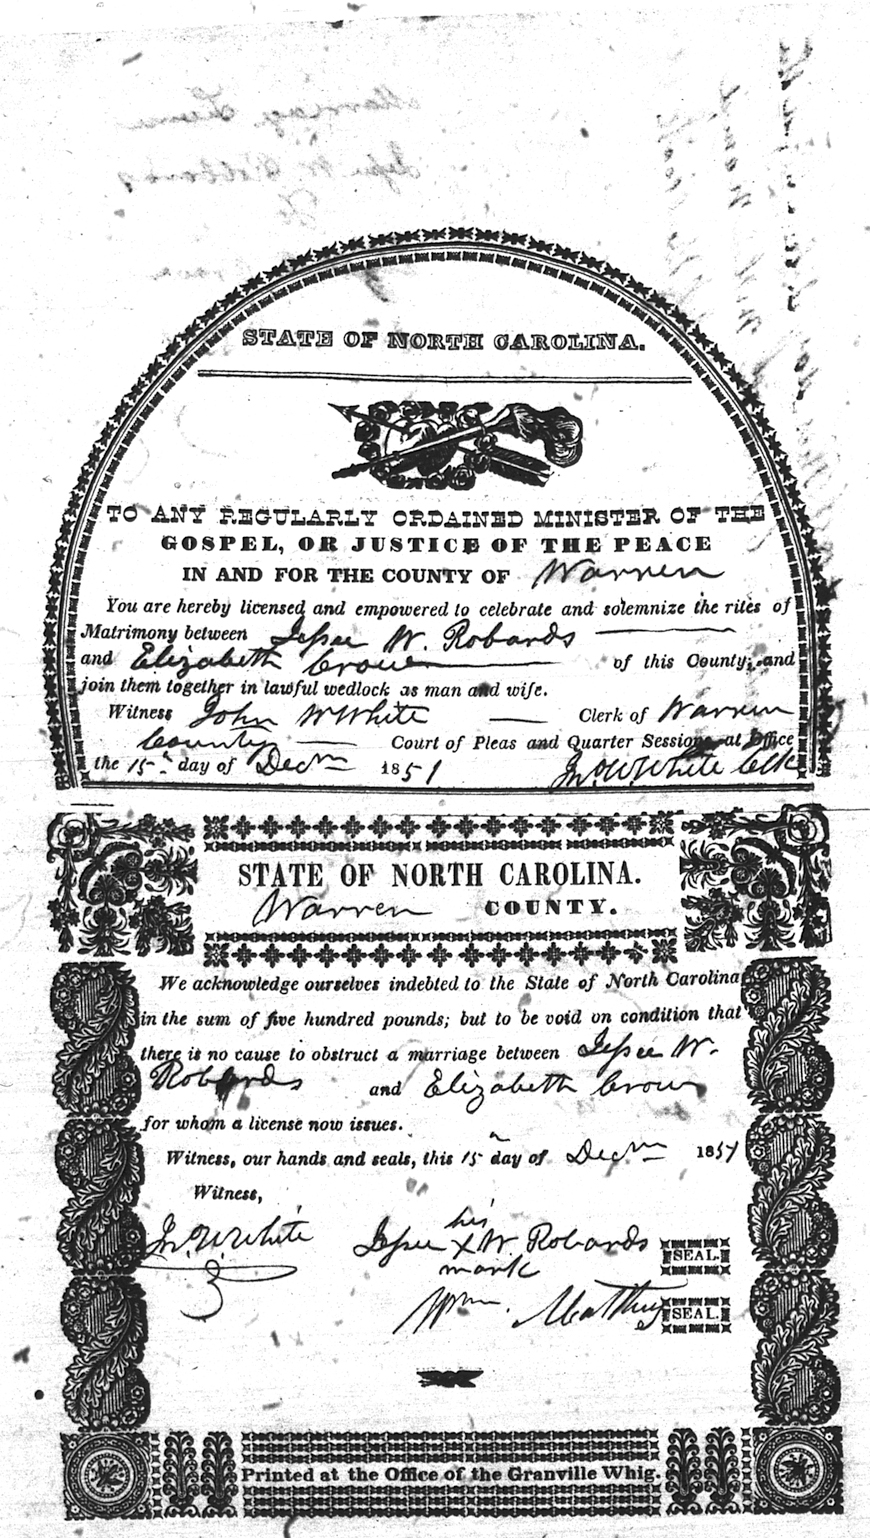 STATE OF NORTH CAROLINA.
TO ANY REGULARLY ORDAINED MINISTER OF THE
GOSPEL, OR JUSTICE OF THE PEACE
IN AND FOR THE COUNTY OF Warren
You are hereby licensed and empowered to celebrate and solemnize the rites of
Matrimony between Jessee W. Robards
and Elizabeth Crow of this County, and
join them together in lawful wedlock as man and wife.
Witness John W White Clerk of Warren
County Court of Pleas and Quarter Sessions at Office
the 15th day of Decm 1851 Jno. W. White Clk
STATE OF NORTH CAROLINA.
Warren COUNTY.
We acknowledge ourselves indebted to the State of North Carolina
in the sum of five hundred pounds; but to be void on condition that
there is no cause to obstruct a marriage between Jessee W.
Robards and Elizabeth Crow
for whom a license now issues.
Witness, our hands and seals, this 15 day of Decm 1851
Witness,
his
Jno. W. White Jessee X W Robards SEAL.
mark
Wm. Matthis SEAL.
Printed at the Office of the Granville Whig.